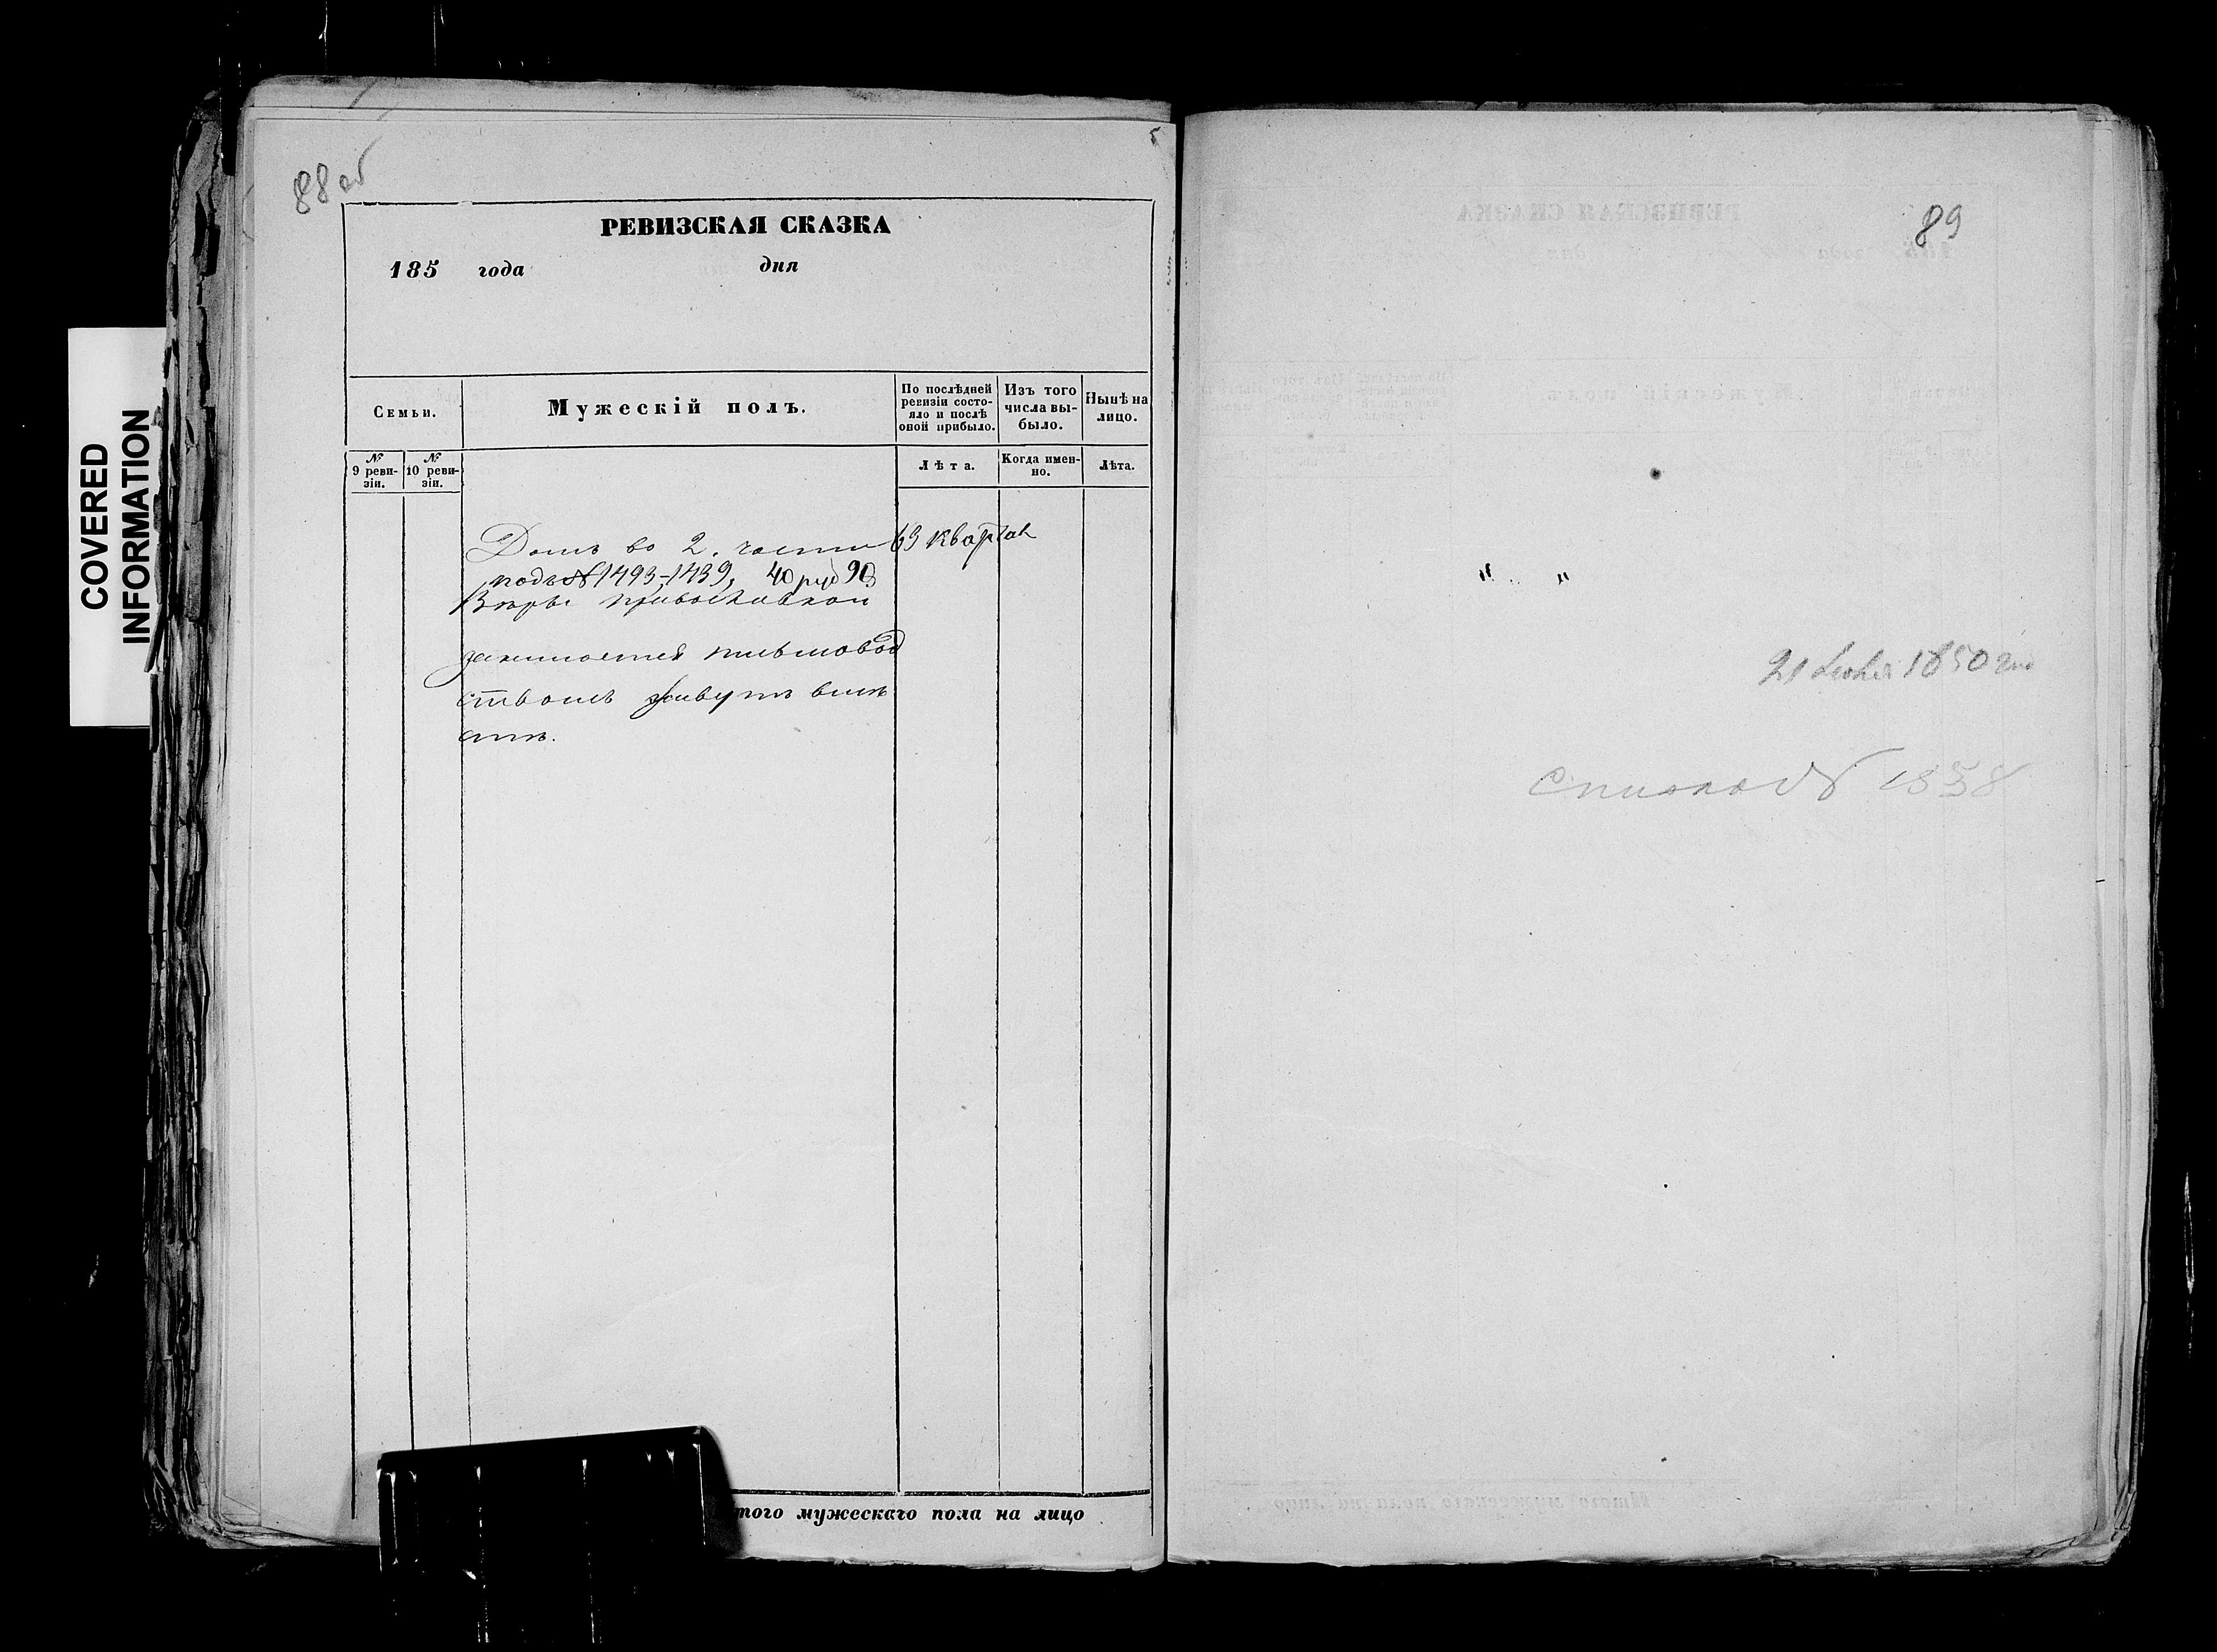 COVERED
INFORMATION
88 об
РЕВИЗСКАЯ СКАЗКА
185 года дня
Семьи.
Мужескій полъ.
По послѣдней ревизіи состояло и послѣ оной прибыло.
Изъ того числа выбыло.
Нынѣ на лицо.
№ 9 ревизіи.
№ 10 ревизіи.
Лѣта.
Когда именно.
Лѣта.
Домъ во 2. части 63 квартал
подъ № 1493-1439, 40 руб 90
Вѣры православной
занимается письмовод
ствомъ живутъ вмѣ
стѣ.
того мужескаго пола на лицо
89
21 1850
Списко 1858